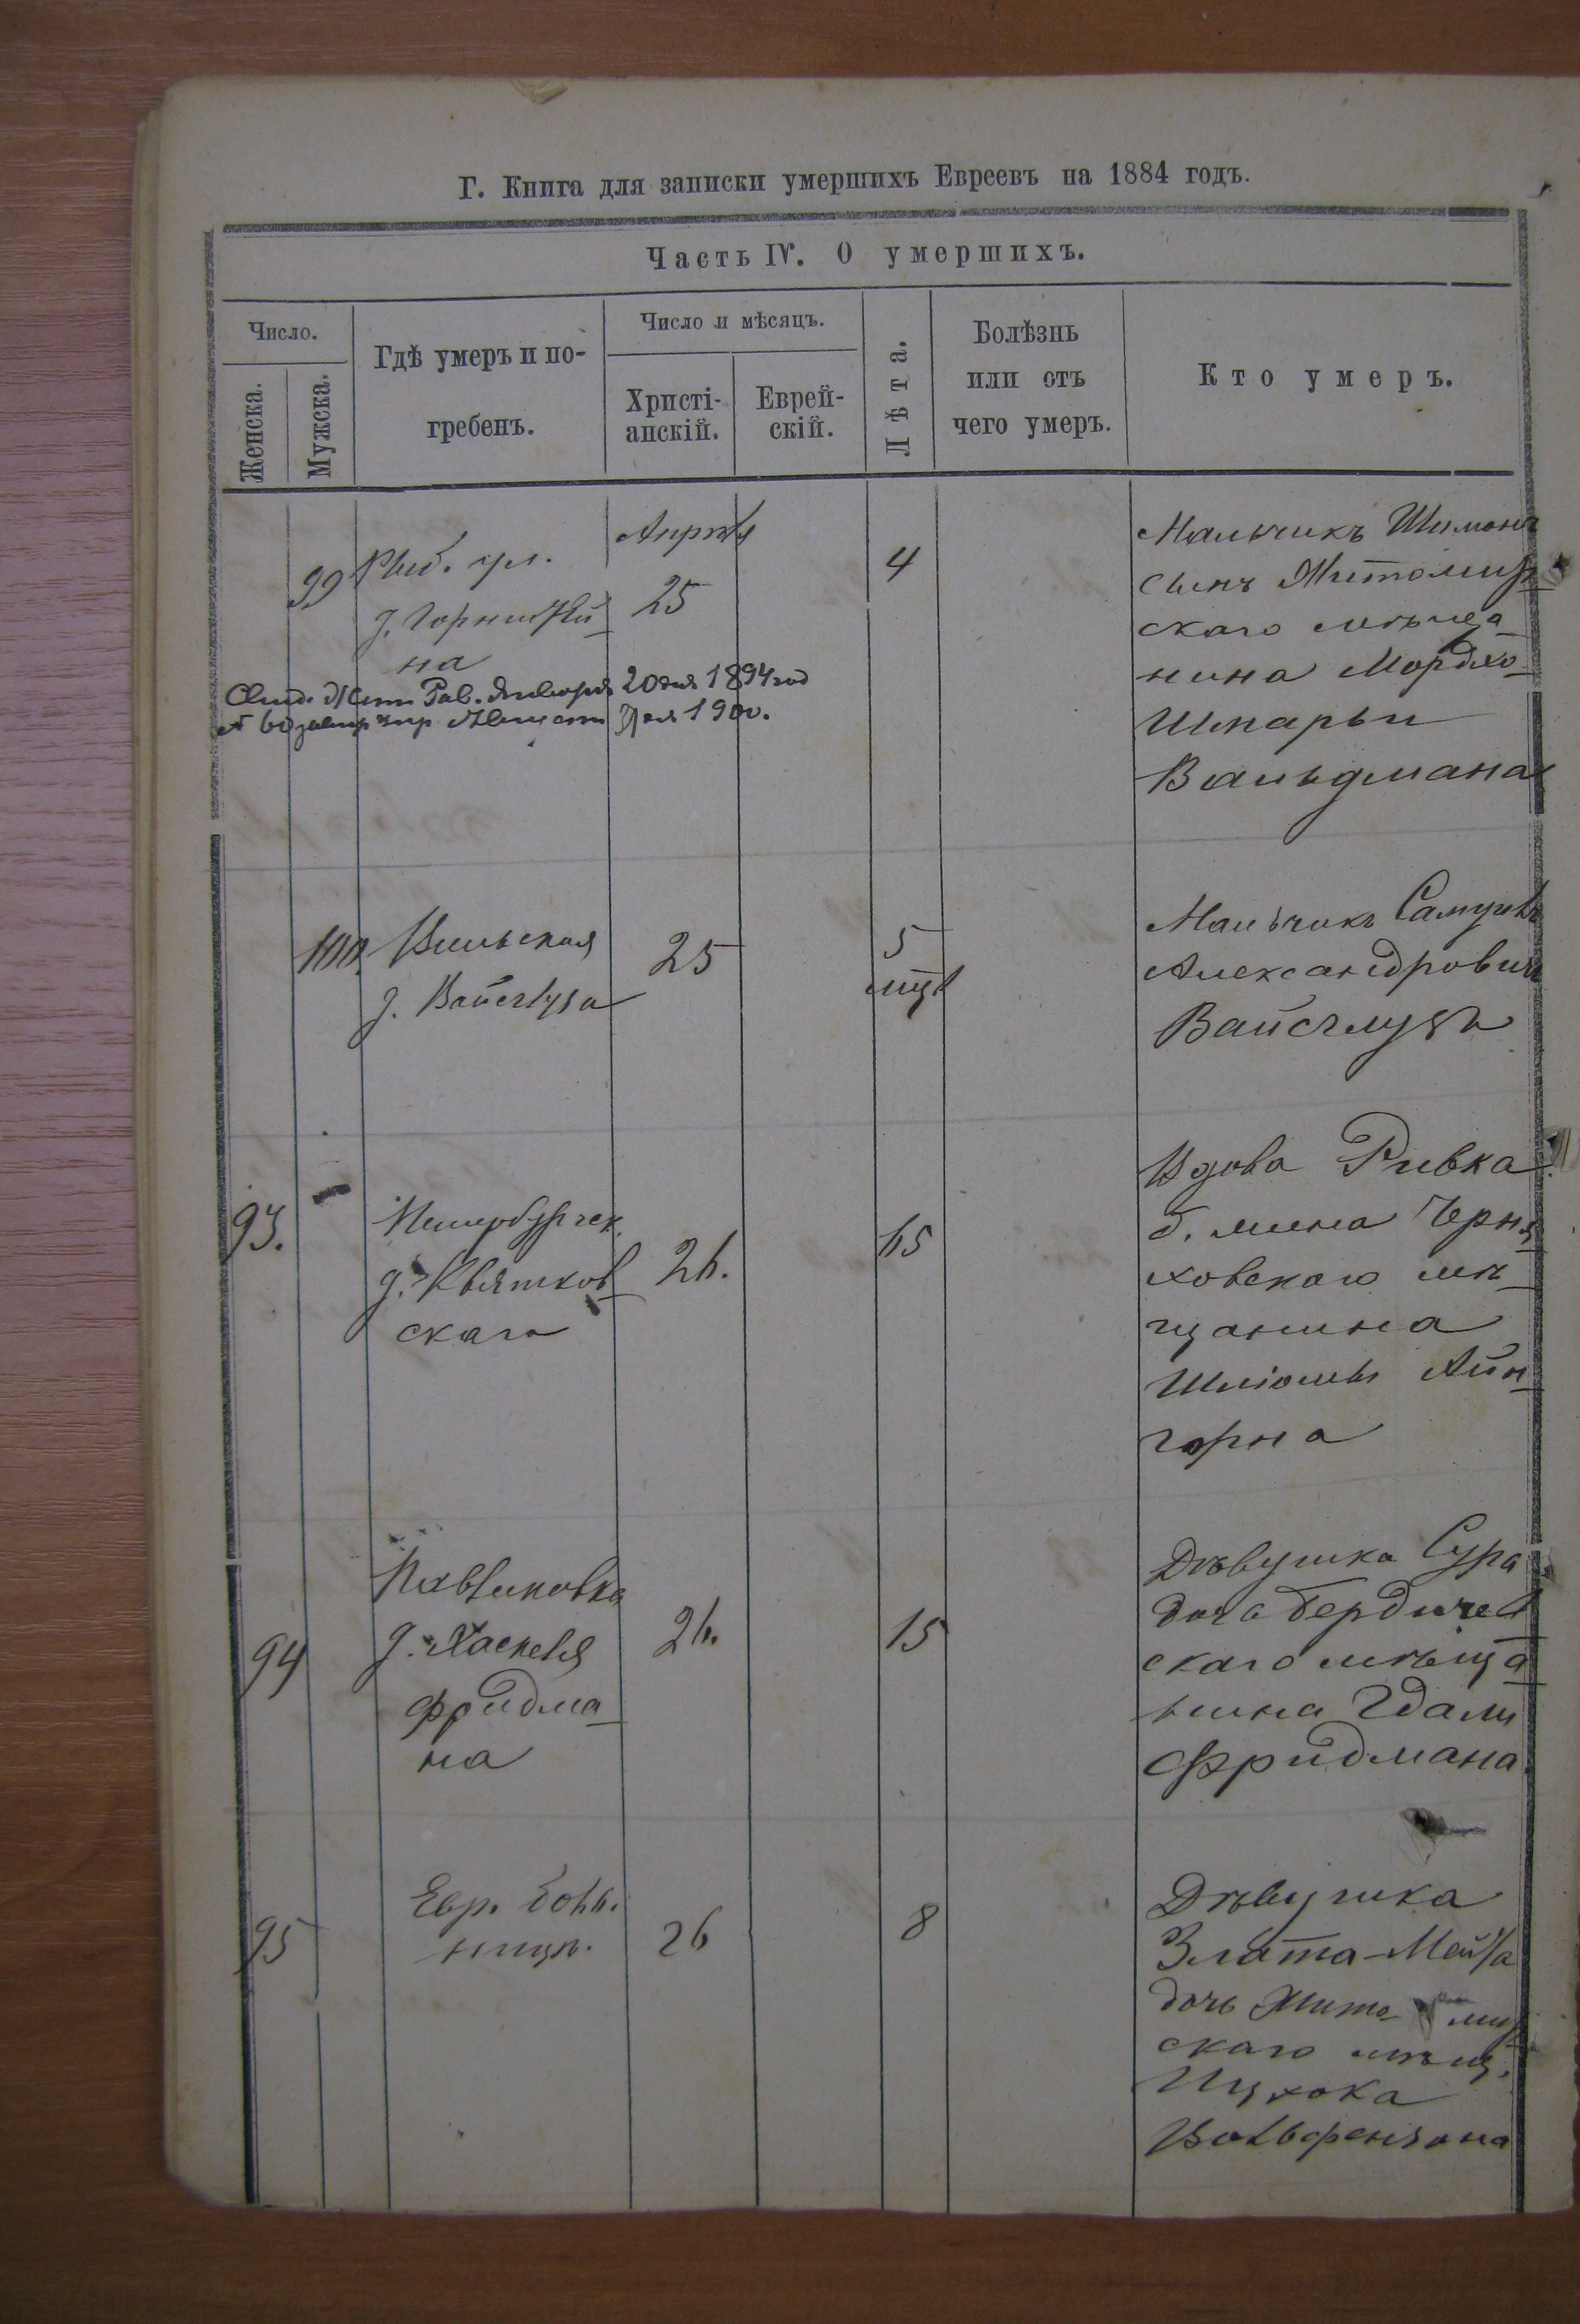 Г. Книга для записки умершихъ Евреевъ на 1884 годъ.
Часть IV. О умершихъ.
Число.
Женска.
Мужска.
Гдѣ умеръ и по-
гребенъ.
Число и мѣсяцъ.
Христі-
анскій.
Еврей-
скій.
Лѣта.
Болѣзнь
или отъ
чего умеръ.
Кто умеръ.
99
ул.
на
Апрѣля
25
4
Мальчикъ Шимонъ
сынъ Житомир-
скаго мѣща-
нина Мордхо-
Шмарьи
Вальдмана
20 дня 1894 год
1900.
100.
Вильская
д. Вайсглуза
25
5
мѣц
Мальчикъ Самуилъ
Александровичъ
Вайсглузъ
93.
д. Квятков-
скаго
26.
65
Вдова Ривка
б. жена Черня-
ховскаго мѣ-
щанина
Шліомы Айн-
горна
94
Павликовка
д. Хаскеля
Фридма-
на
26.
15
Дѣвушка Сура
дочь Бердичев
скаго мѣща-
нина Гдали
Фридмана
95
Евр. боль.
ница.
26
8
Дѣвушка
Злата-Малка
дочь Жито- мир
скаго мѣщ.
Ицхока
Вольфензона